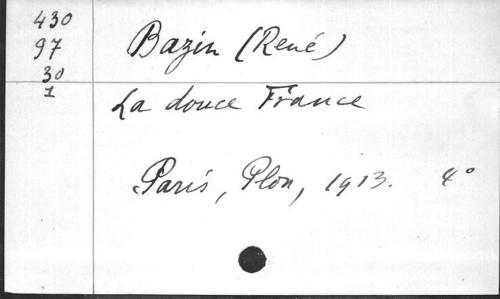 430
97
30
1
Bazin (René)
La douce France
Paris, Plon, 1913. 4°